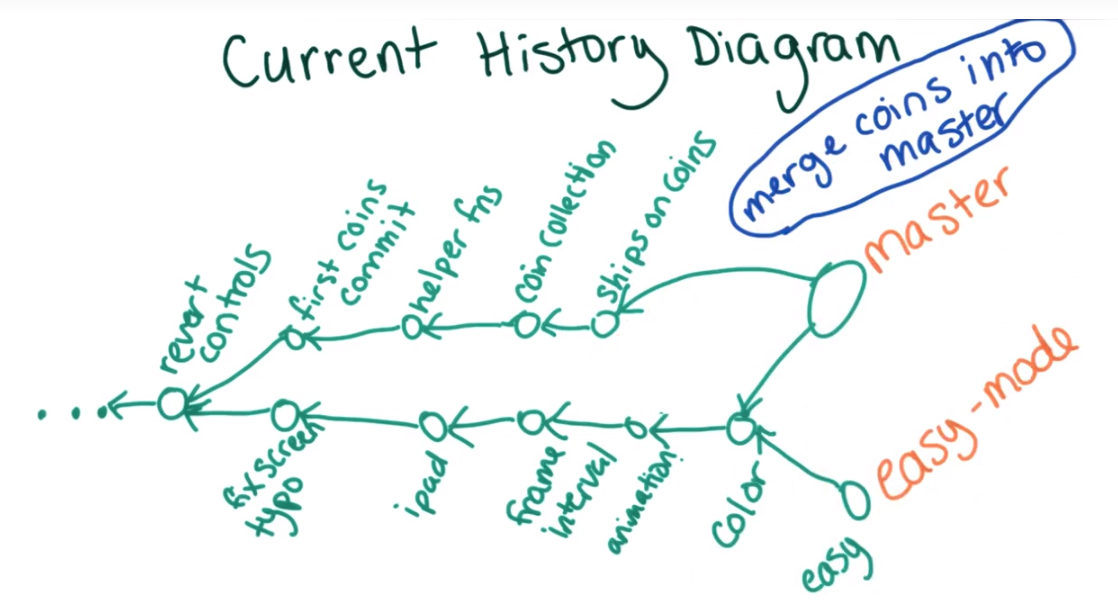 Current History Diagram
merge coins into
master
master
revert
controls
first coins
commit
helper fns
coin collection
ships on coins
fix screen
typo
ipad
frame
interval
animation
color
easy
easy-mode